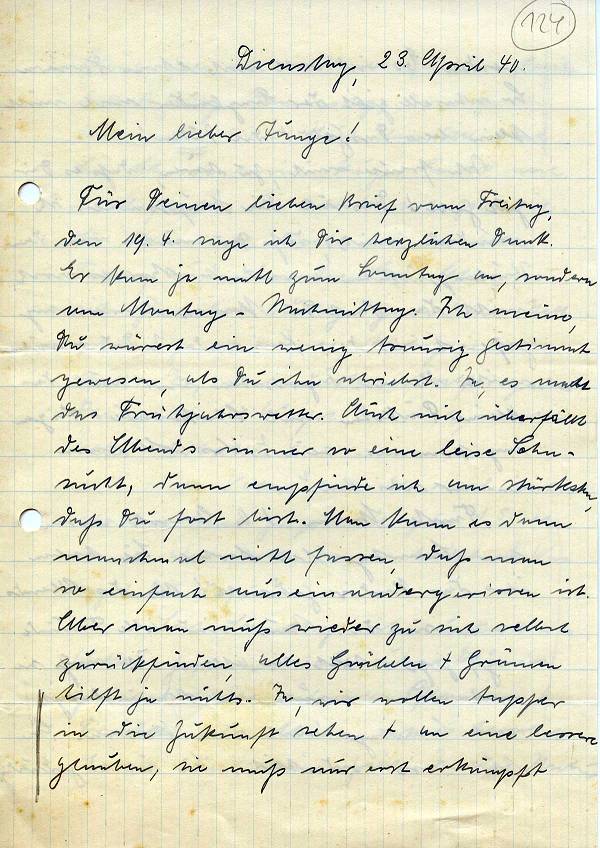 124
Dienstag, 23. April 40.
Mein lieber Junge!
Für Deinen lieben Brief vom Freitag,
den 19. 4. sage ich Dir herzlichen Dank.
Er kam ja nicht zum Sonntag an, sondern
am Montag - Nachmittag. Ich meine,
Du wärest ein wenig traurig gestimmt
gewesen, als Du ihn schriebst. Ja, es macht
das Frühjahrswetter. Auch mich überfällt
des Abends immer so eine leise Sehn-
sucht, dann empfinde ich am stärksten,
daß Du fort bist. Man kann es dann
manchmal nicht fassen, daß man
so einfach auseinandergerissen ist.
Aber man muß wieder zu sich selbst
zurückfinden, alles Grübeln + Grämen
hilft ja nichts. Ja, wir wollen tapfer
in die Zukunft sehen + an eine bessere
glauben, sie muß nur erst erkämpft